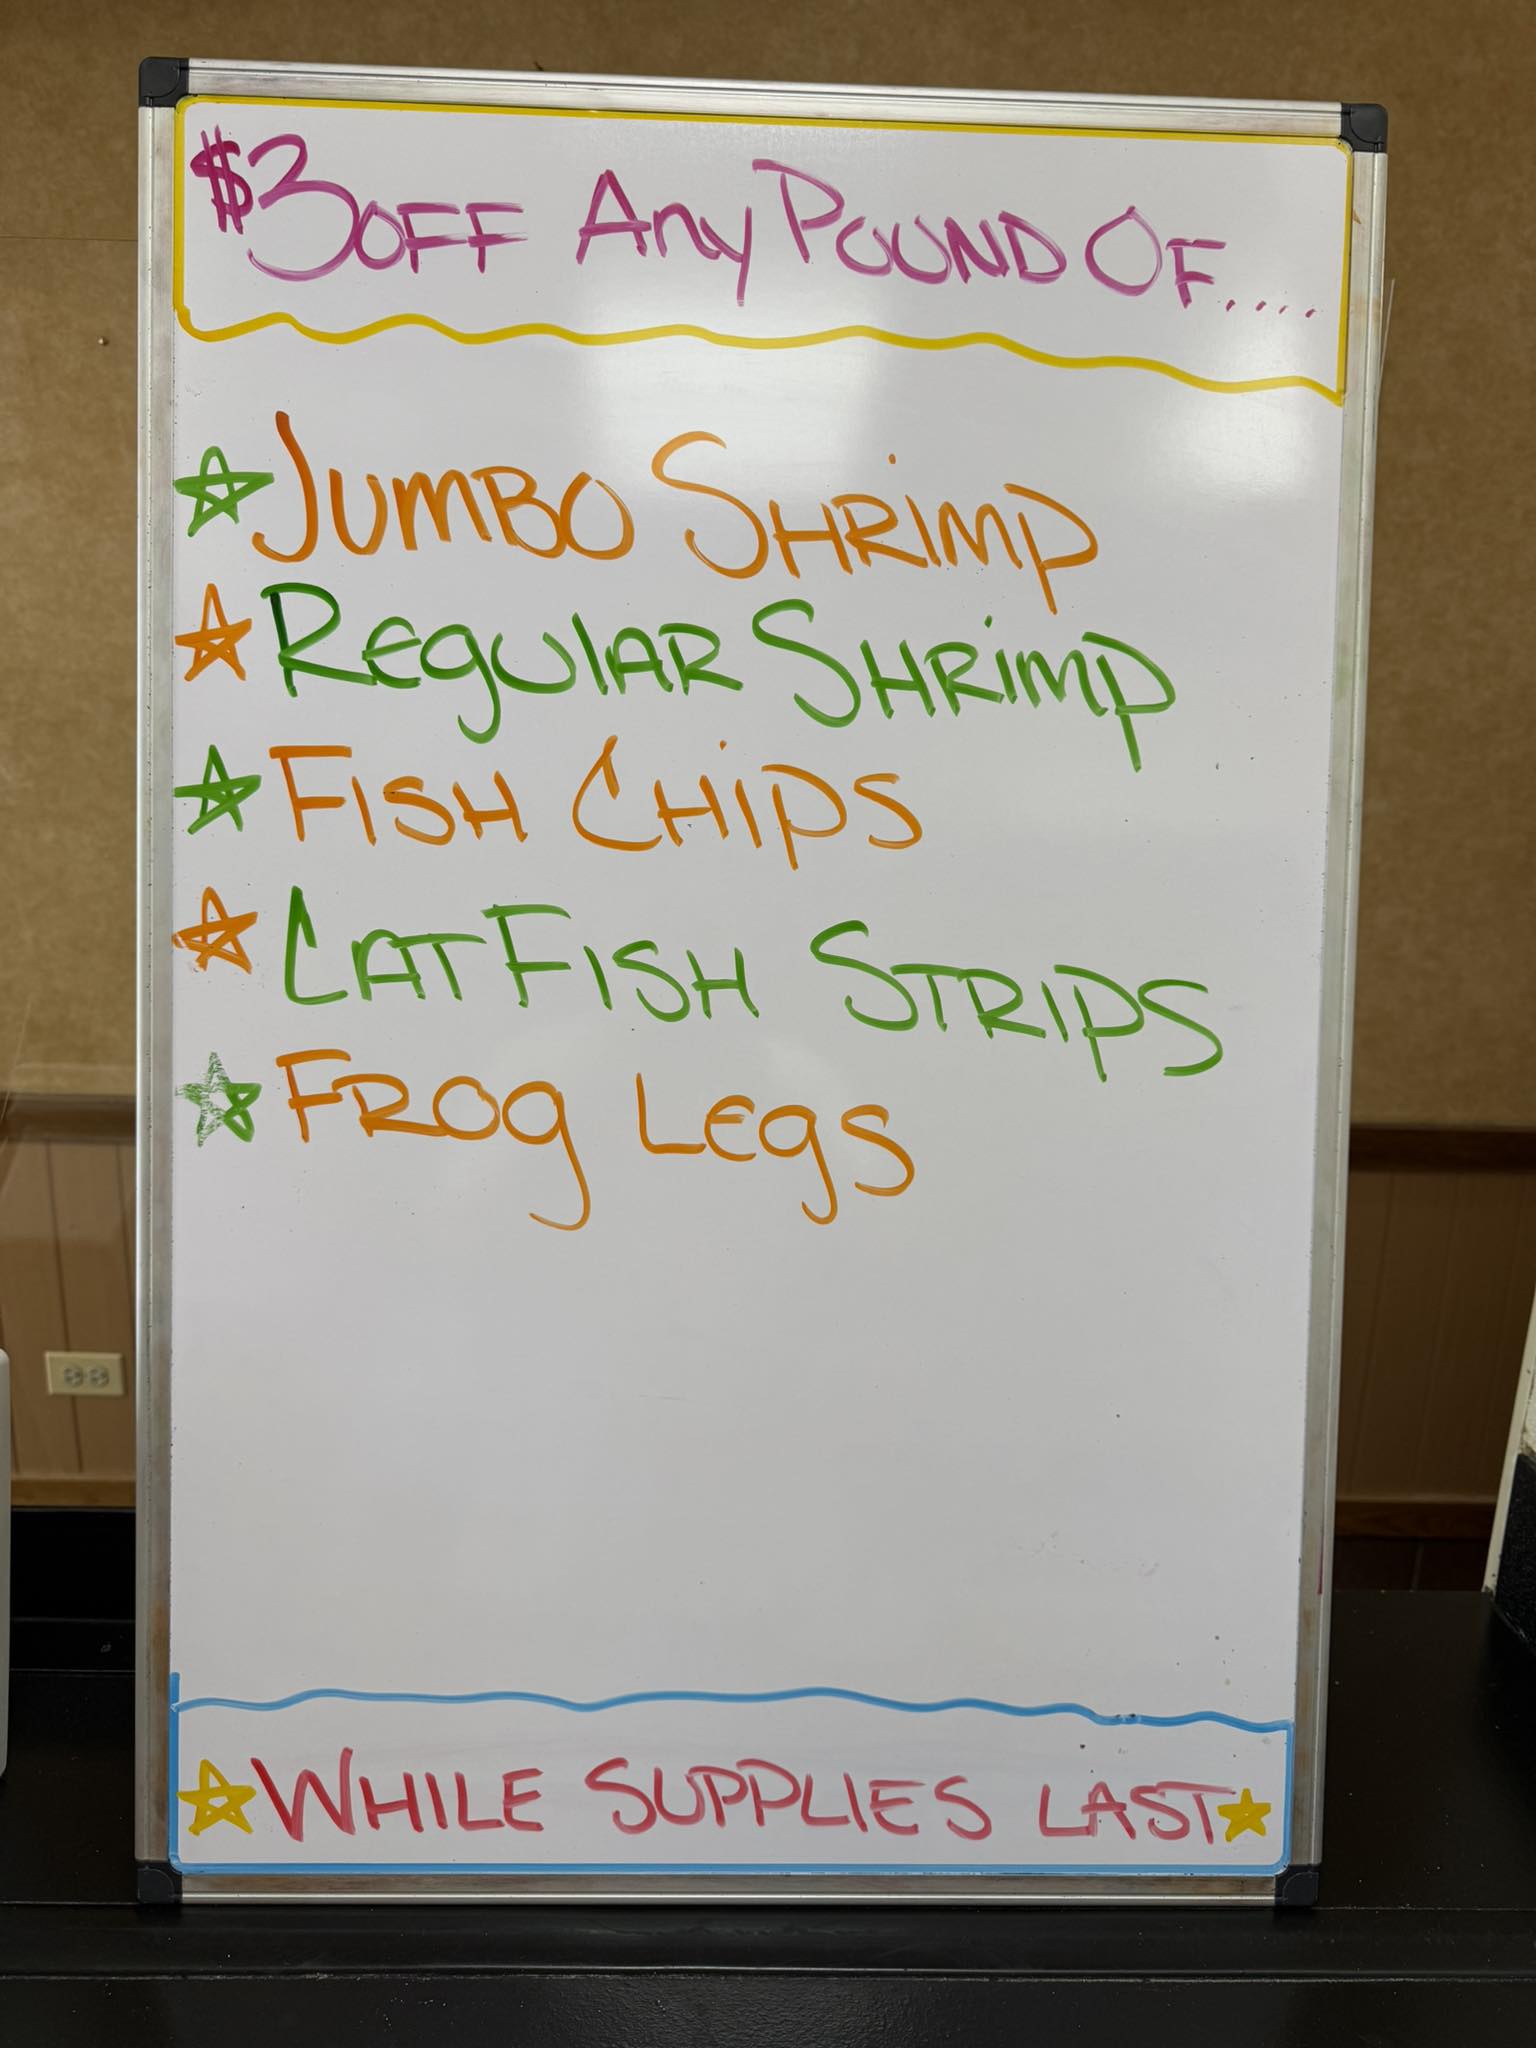 $3 OFF Any POUND OF.....
JUMBO SHRIMP
REGULAR SHRIMP
FISH CHIPS
CATFISH STRIPS
FROG LEGS
WHILE SUPPLIES LAST